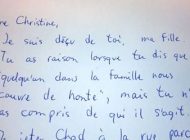 re Christine,
Je suis déçu de toi, ma fille
Tu as raison lorsque tu dis que
quelqu'un dans la famille nous
couvre de honte", mais tu n'
as compris de qui il s'agit
jeter Chad à la rue pa